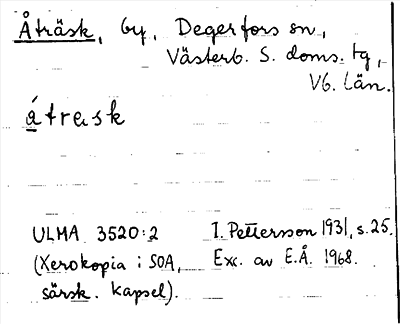 Åträsk, by, Degerfors sn,
Västerb. S. doms. tg,
Vb. län.
átrask
ULMA 3520:2 I. Pettersson 1931, s. 25.
(Xerokopia i SOA, Exc. av E.Å. 1968.
särsk. kapsel).